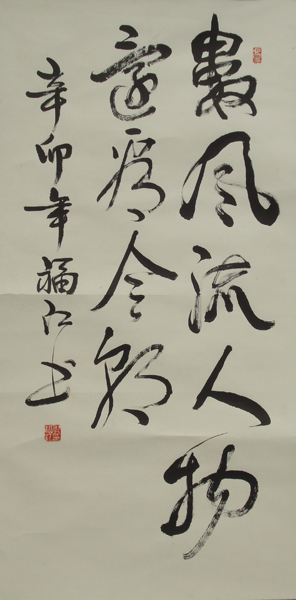 數风流人物
還看今朝
辛卯年福江书